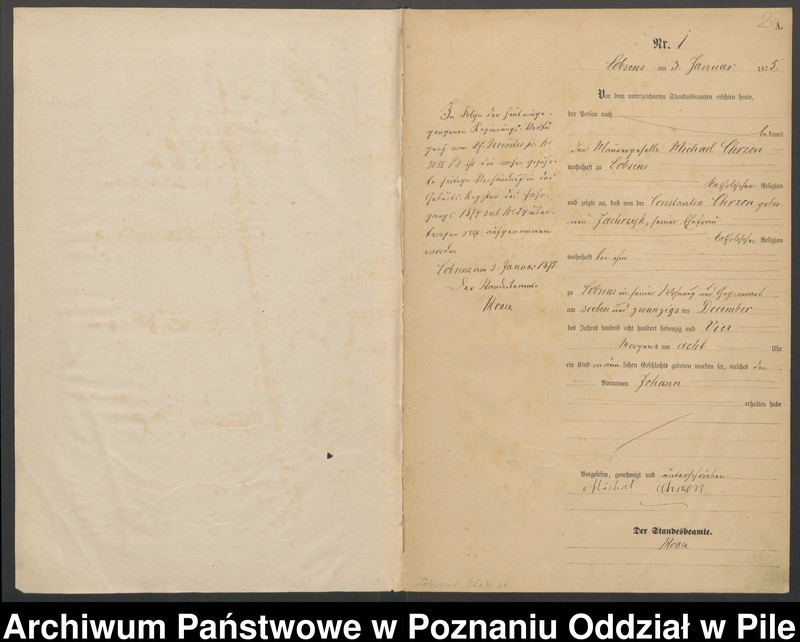 2 A.
Nr. 1
Lobsens am 3. Januar 1875.
Vor dem unterzeichneten Standesbeamten erschien heute,
der Person nach
bekannt
der Maurergeselle Michael Chozon
wohnhaft zu Lobsens
katholischer Religion
und zeigte an, daß von der Constantia Chozon gebor-
nen Jachczyk, seiner Ehefrau
katholischer Religion
wohnhaft bei ihm
zu Lobsens in seiner Wohnung und Gegenwart
am sieben und zwanzigsten December
des Jahres tausend acht hundert siebenzig und Vier
Morgens um acht Uhr
ein Kind männlichen Geschlechts geboren worden sei, welches den
Vornamen Johann
erhalten habe
Vorgelesen, genehmigt und unterschrieben
Michal
Der Standesbeamte.
In Folge der heut einge-
gangenen Regierungs-Verfü-
gung vom December
ist die
Verhandlung in das
Geburts-Register des Jahr-
gangs 1874 sub No 24 über-
tragen resp. aufgenommen
worden
Lobsens am 3. Januar 1875
Der Standesbeamte
Archiwum Państwowe w Poznaniu Oddział w Pile